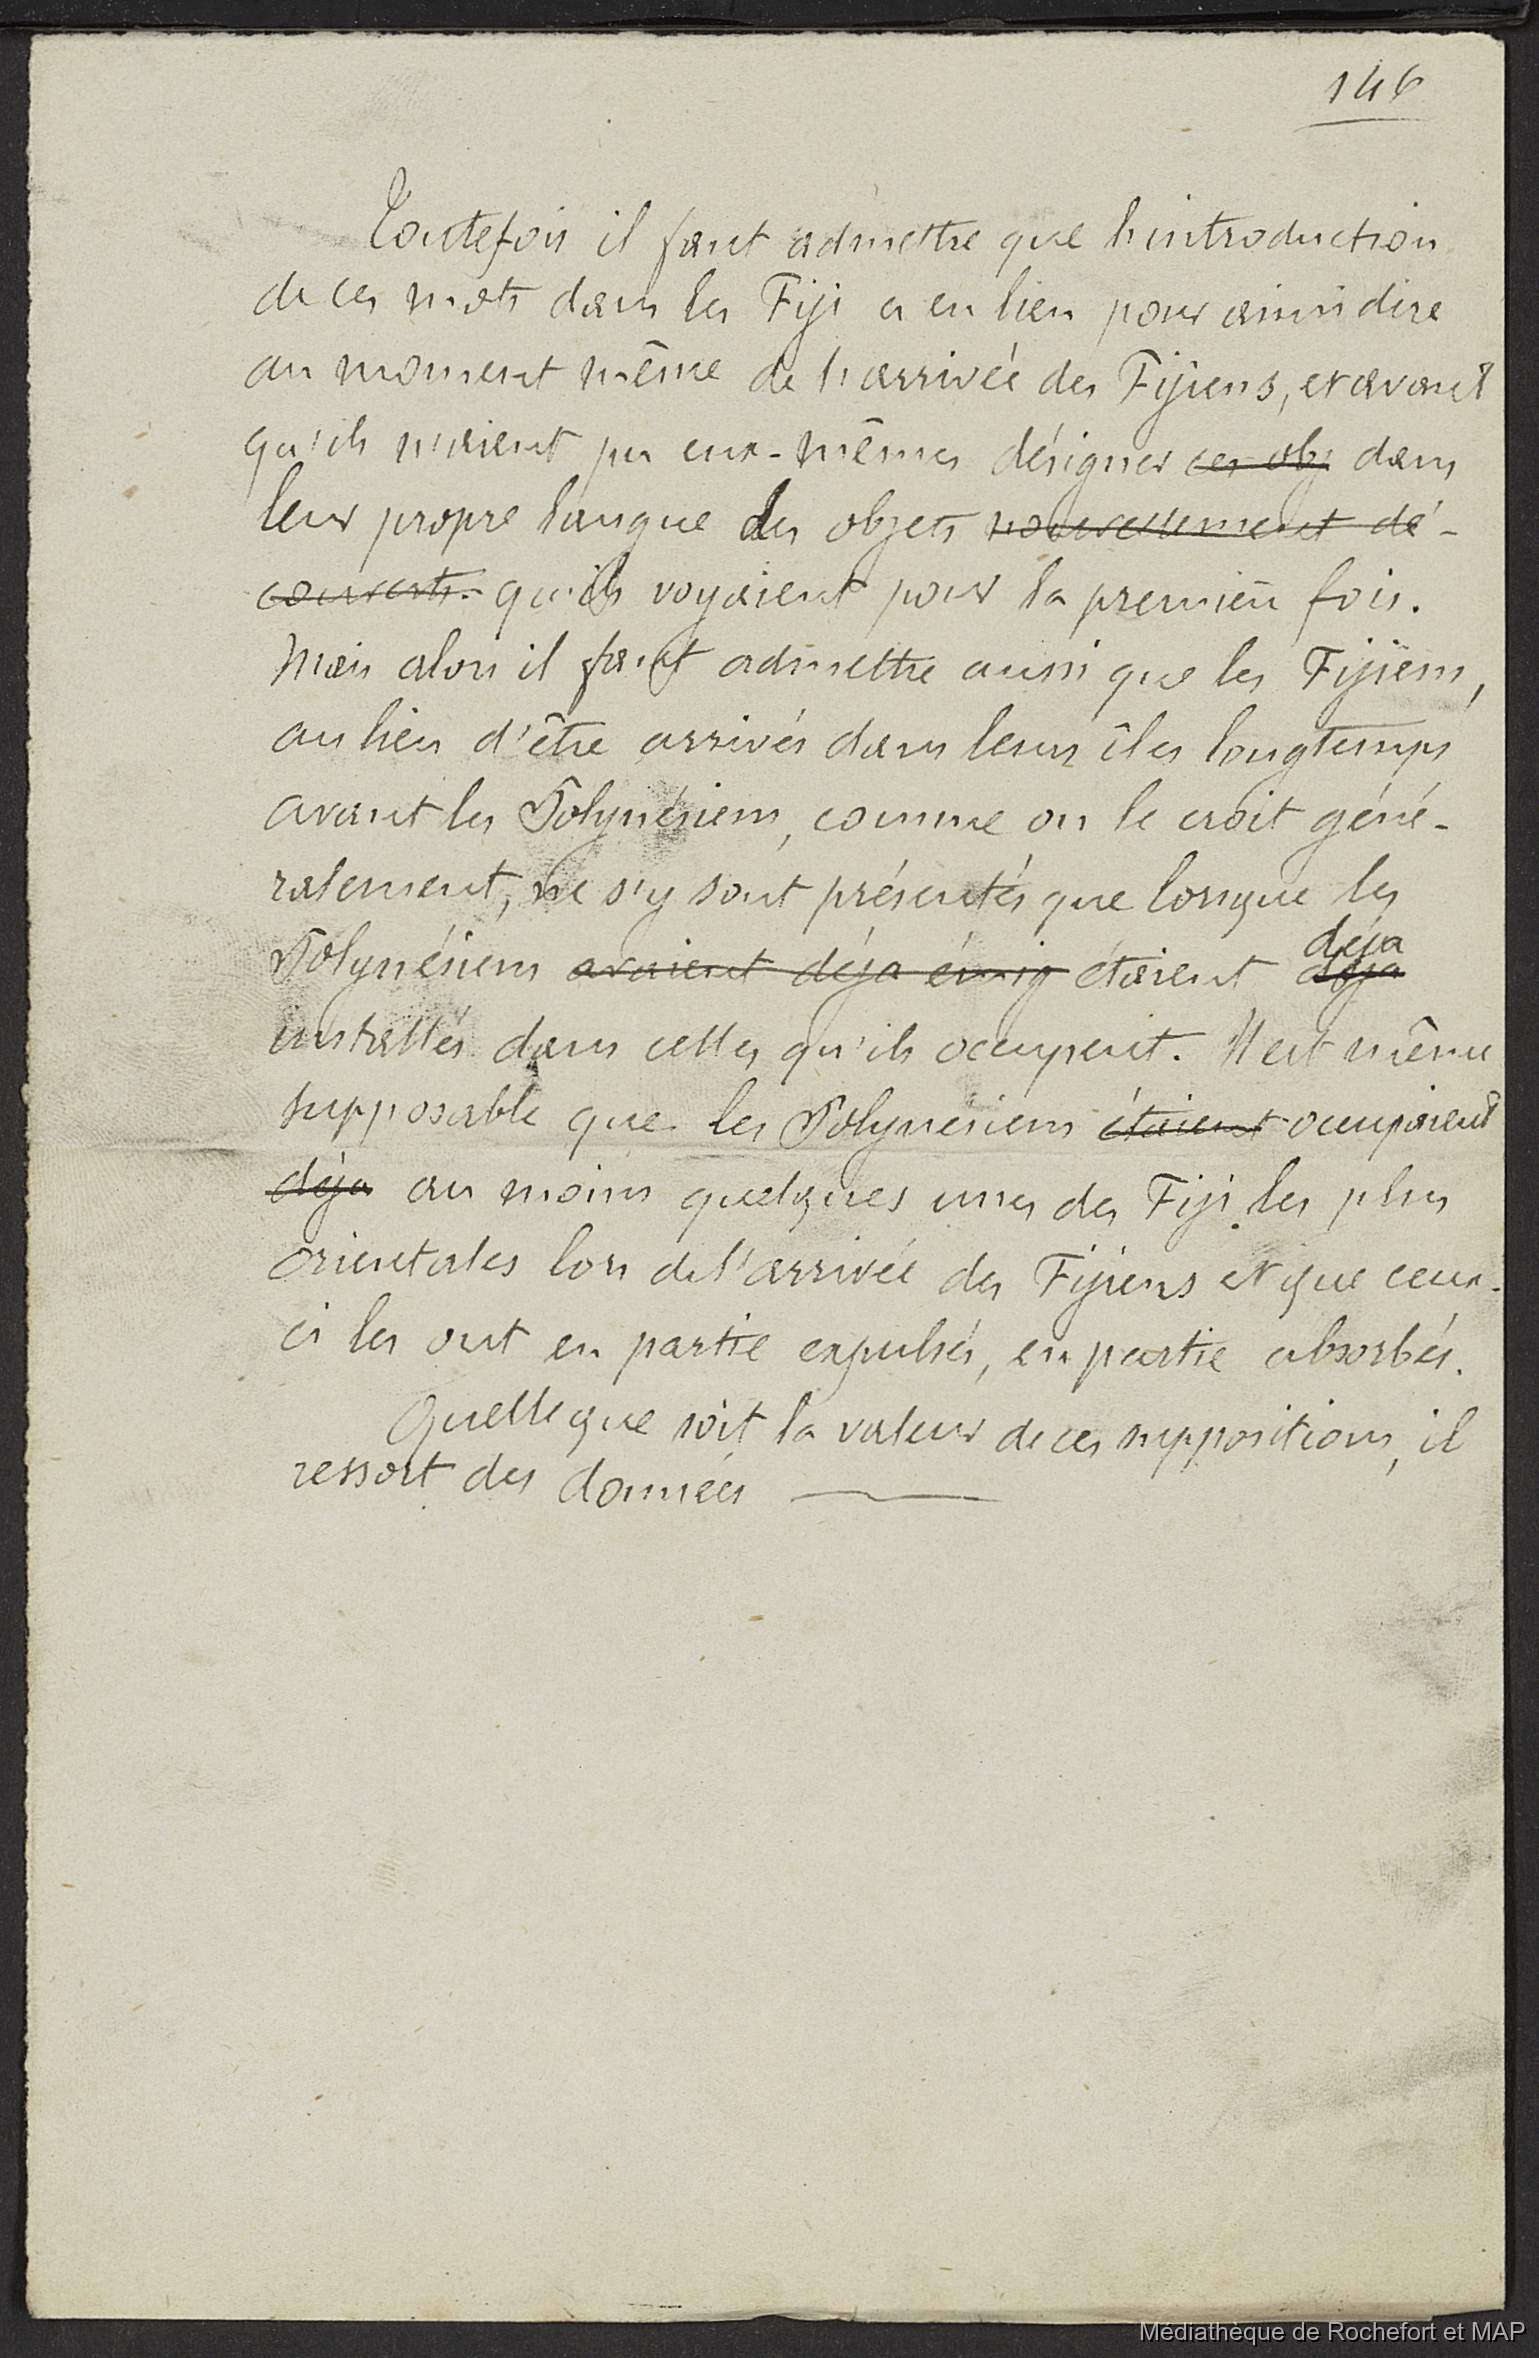 146
Toutefois il faut admettre que l'introduction
de ces mots dans les Fiji a eu lieu pour ainsi dire
au moment même de l'arrivée des Fijiens, et avant
qu'ils n'aient pu eux-mêmes désigner ces obj dans
leur propre langue des objets nouvellement dé-
couverts. qu'ils voyaient pour la première fois.
Mais alors il faut admettre aussi que les Fijïens,
au lieu d'être arrivés dans leurs îles longtemps
avant les Polynésiens, comme on le croit géné-
ralement, ne s'y sont présentés que lorsque les
déja
Polynésiens avaient déja émig étaient déja
installés dans celles qu'ils occupent. Il est même
supposable que les Polynésiens étaient occupaient
déja au moins quelques unes des Fiji les plus
orientales lors de l'arrivée des Fijiens et que ceux-
ci les ont en partie expulsés, en partie absorbés.
Quelle que soit la valeur de ces suppositions, il
ressort des données
Médiathèque de Rochefort et MAP